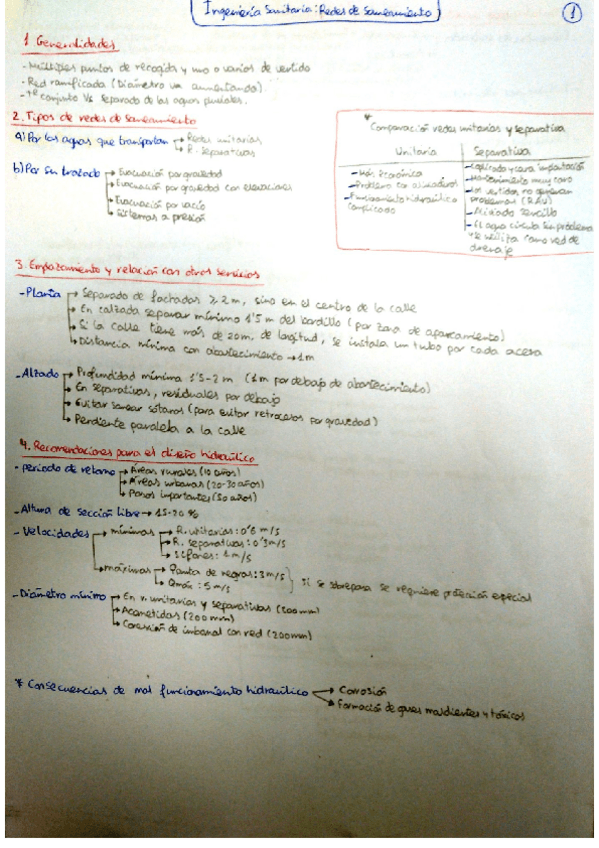 Ingeniería Sanitaria: Redes de Saneamiento
1
1 Generalidades
- Múltiples puntos de recogida y uno o varios de vertido
- Red ramificada (Diámetro va aumentando)
conjunto Vs separado de las aguas pluviales.
2. Tipos de redes de saneamiento
a) Por las aguas que transportan → Redes unitarias
→ R. separativas
b) Por su trazado → Evacuación por gravedad
→ Evacuación por gravedad con elevaciones
→ Evacuación por vacío
→ Sistemas a presión
* Comparación redes unitarias y separativa
Unitaria
- Más económica
- Problema con aliviaderos
- Funcionamiento hidráulico
complicado
Separativa
- Complicada y cara implantación
- Mantenimiento muy caro
- Los vertidos no generan
problemas (R.A.U)
- Aliviado sencillo
- El agua circula sin problema
y se utiliza como red de
drenaje
3. Emplazamiento y relación con otros servicios
- Planta → Separado de fachadas ≥ 2m, sino en el centro de la calle
→ En calzada separar mínimo 1'5 m del bordillo (por zona de aparcamiento)
→ Si la calle tiene más de 20m, de longitud, se instala un tubo por cada acera
→ Distancia mínima con abastecimiento → 1m
- Alzado → Profundidad mínima 1'5-2 m (1m por debajo de abastecimiento)
→ En separativas, residuales por debajo
→ Evitar sanear sótanos (para evitar retrocesos por gravedad)
→ Pendiente paralela a la calle
4. Recomendaciones para el diseño hidraúlico
- periodo de retorno → Áreas rurales (10 años)
→ Áreas urbanas (20-30 años)
→ Pasos importantes (50 años)
- Altura de sección libre → 15-20 %
- Velocidades → mínimas → R. unitarias: 0'6 m/s
→ R. separativas: 0'3 m/s
→ Sifones: 1 m/s
→ máximas → Punta de negras: 3 m/s
→ Qmáx: 5 m/s } si se sobrepasa se requiere protección especial
- Diámetro mínimo → En r. unitarias y separativas (200mm)
→ Acometidas (200 mm)
→ Conexión de imbornal con red (200mm)
* Consecuencias de mal funcionamiento hidraúlico → Corrosión
→ Formación de gases malolientes y tóxicos